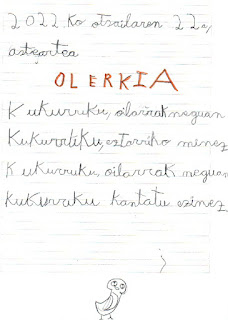 2022.ko otsailaren 22a,
asteartea
OLERKIA
Kukurruku, oilarrak neguan
Kukurruku, eztarriko minez
Kukurruku, oilarrak neguan
Kukurruku kantatu ezinez